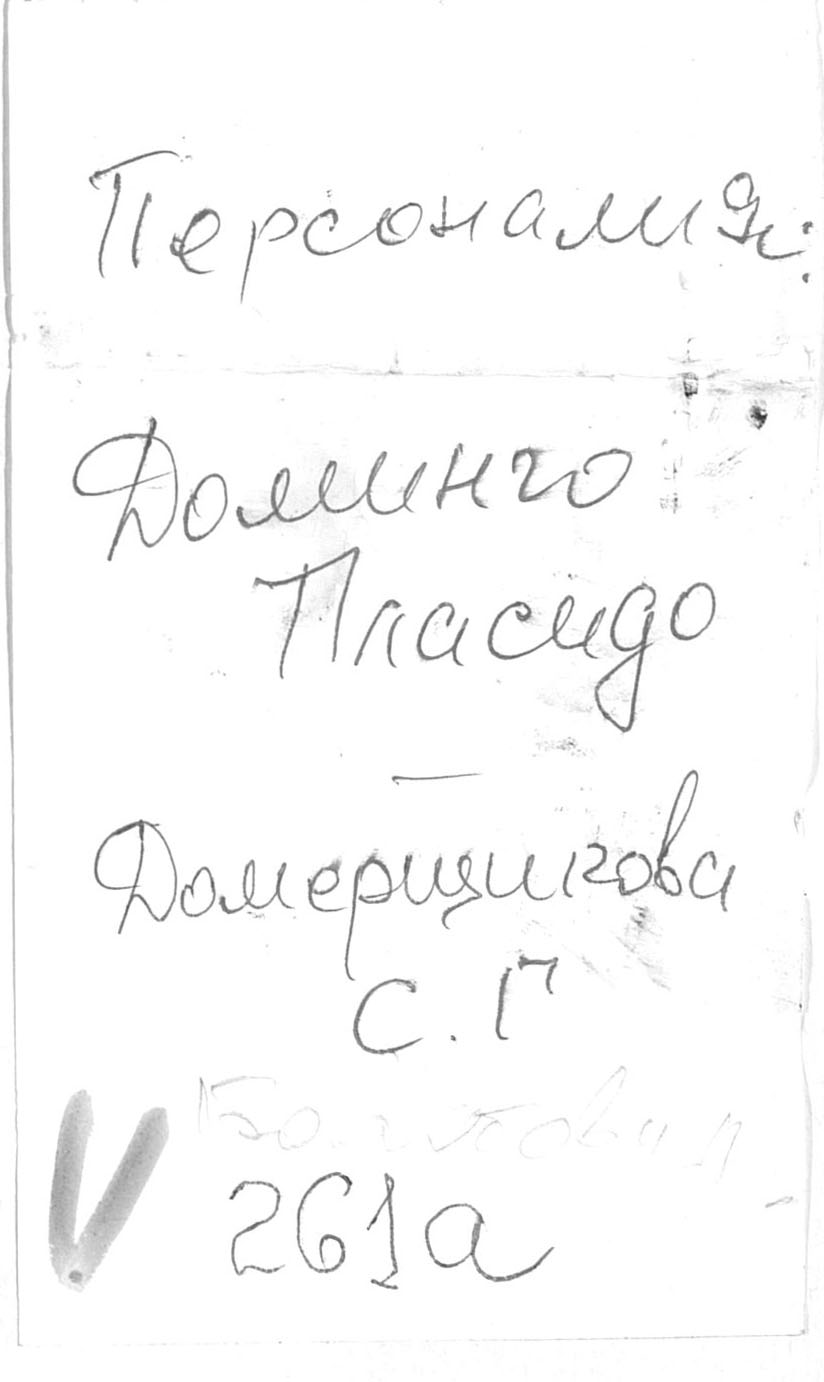 Персоналия:
Доминго
Пласидо
—
Домерщикова
С. Г
261а